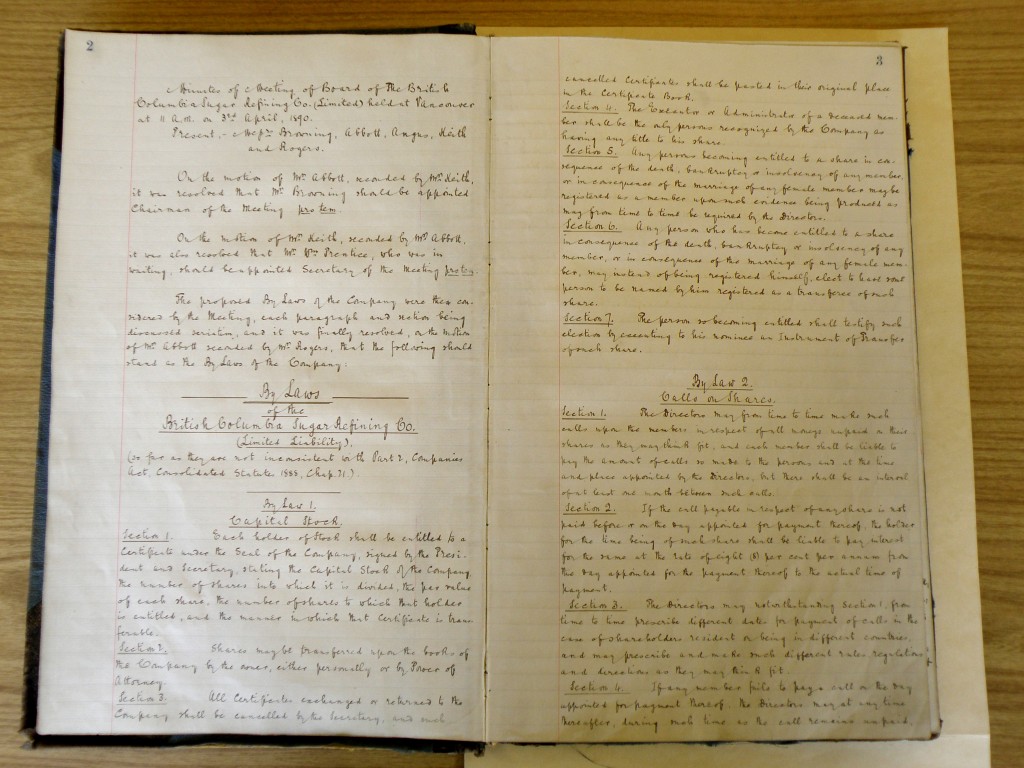 2
Minutes of Meeting of Board of The British
Columbia Sugar Refining Co. (Limited) held at Vancouver
at 11 A.M. on 3rd April, 1890.
Present, - Messrs Browning, Abbott, Angus, Keith
and Rogers.
On the motion of Mr. Abbott, seconded by Mr. Keith,
it was resolved that Mr. Browning should be appointed
Chairman of the Meeting protem.
On the motion of Mr. Keith, seconded by Mr. Abbott,
it was also resolved that Mr. Wm Prentice, who was in
waiting, should be appointed Secretary of the Meeting protem.
The proposed By Laws of the Company were then con-
sidered by the Meeting, each paragraph and section being
discussed seriatim, and it was finally resolved, on the motion
of Mr. Abbott seconded by Mr. Rogers, that the following should
stand as the By Laws of the Company:
By Laws
of the
British Columbia Sugar Refining Co.
(Limited Liability).
(so far as they are not inconsistent with Part 2, Companies
Act, Consolidated Statutes 1888, Chap. 21.)
By Law 1.
Capital Stock.
Section 1. Each holder of Stock shall be entitled to a
Certificate under the Seal of the Company, signed by the Presi-
dent and Secretary, stating the Capital Stock of the Company,
the number of shares into which it is divided, the par value
of each share, the number of shares to which that holder
is entitled, and the manner in which that Certificate is trans-
ferable.
Section 2. Shares may be transferred upon the books of
the Company by the owner, either personally or by Power of
Attorney.
Section 3. All Certificates exchanged or returned to the
Company shall be cancelled by the Secretary, and such
3
cancelled Certificates shall be pasted in their original place
in the Certificate Book.
Section 4. The Executor or Administrator of a deceased mem-
ber shall be the only persons recognized by the Company as
having any title to his share.
Section 5. Any persons becoming entitled to a share in con-
sequence of the death, bankruptcy or insolvency of any member,
or in consequence of the marriage of any female member may be
registered as a member upon such evidence being produced as
may from time to time be required by the Directors.
Section 6. Any person who has become entitled to a share
in consequence of the death, bankruptcy or insolvency of any
member, or in consequence of the marriage of any female mem-
ber, may instead of being registered himself, elect to have some
person to be named by him registered as a transferee of such
share.
Section 7. The person so becoming entitled shall testify such
election by executing to his nominee an Instrument of Transfer
of such share.
By Law 2.
Calls on Shares.
Section 1. The Directors may from time to time make such
calls upon the members in respect of all moneys unpaid on their
shares as they may think fit, and each member shall be liable to
pay the amount of calls so made to the persons and at the time
and place appointed by the Directors, but there shall be an interval
of at least one month between such calls.
Section 2. If the call payable in respect of any share is not
paid before or on the day appointed for payment thereof, the holder
for the time being of such share shall be liable to pay interest
for the same at the rate of eight (8) per cent per annum from
the day appointed for the payment thereof to the actual time of
payment.
Section 3. The Directors may notwithstanding Section 1, from
time to time prescribe different dates for payment of calls in the
case of shareholders resident or being in different countries,
and may prescribe and make such different rules regulations
and directions as they may think fit.
Section 4. If any member fails to pay a call on the day
appointed for payment thereof, the Directors may at any time
thereafter, during such time as the call remains unpaid,